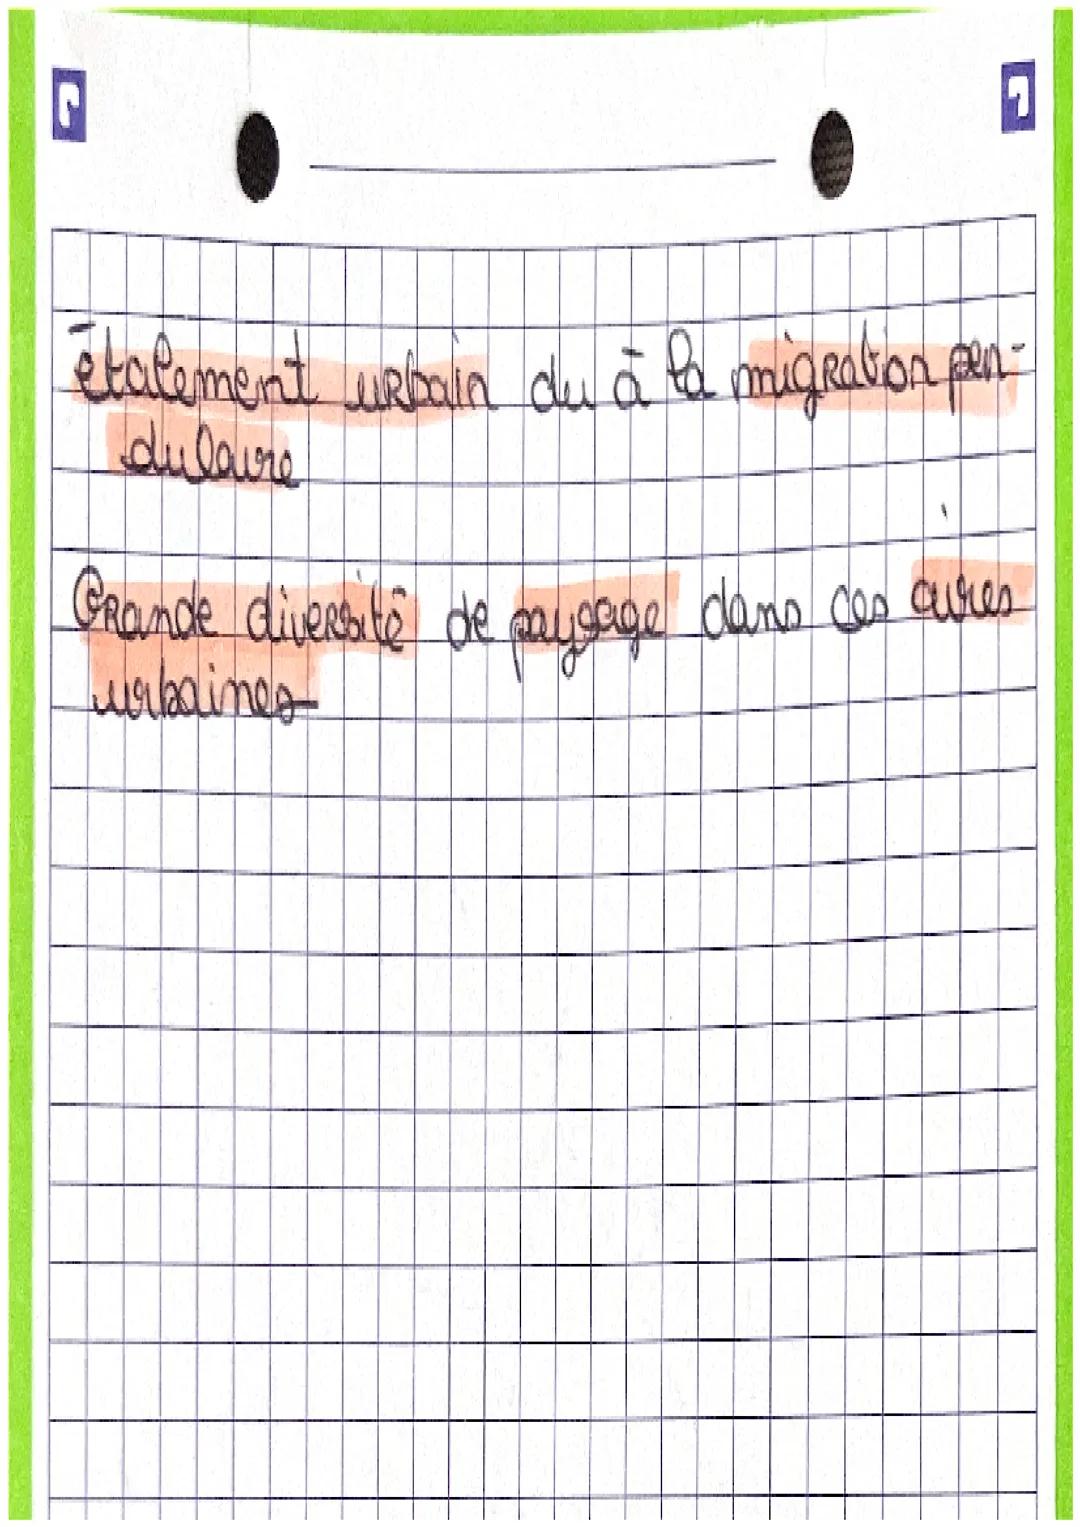 étalement urbain du à la migration pen-
dulaire
Grande diversité de paysage dans ces aires
urbaines